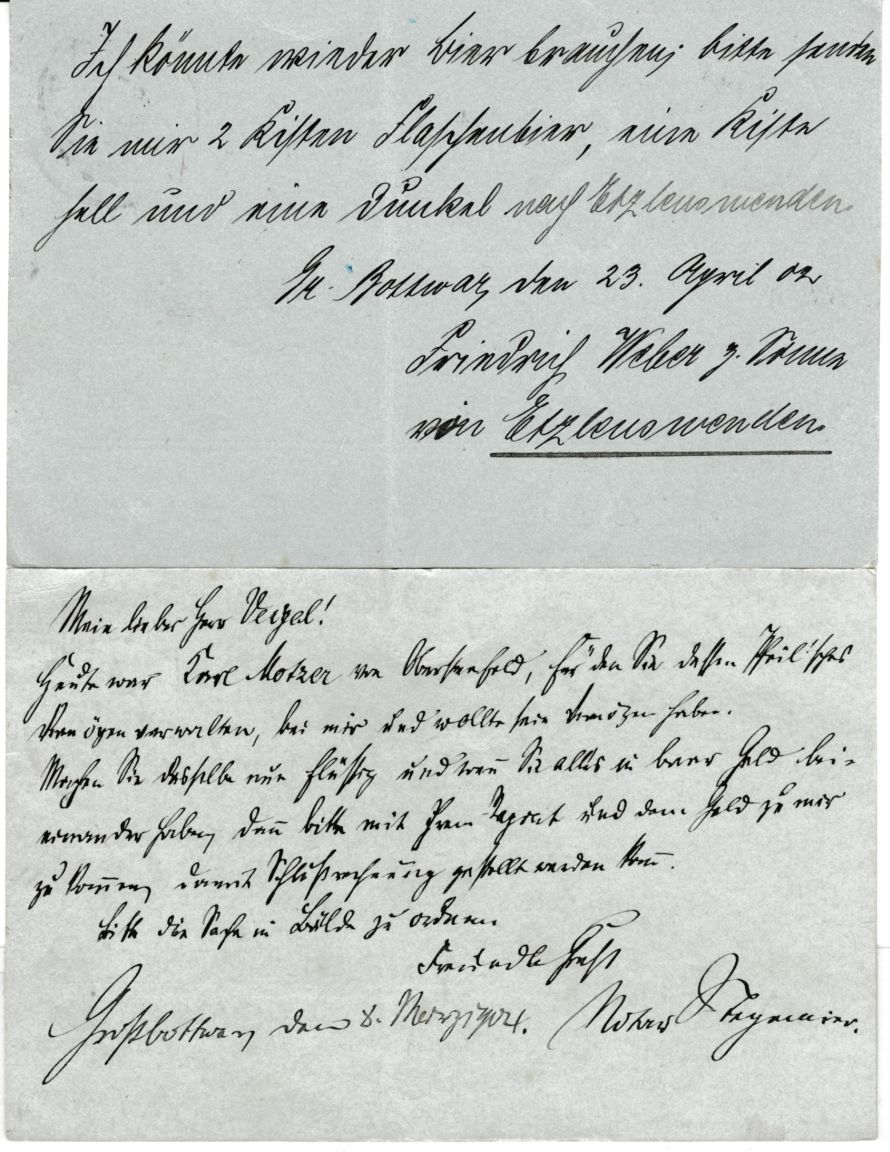 Ich könnte wieder Bier brauchen; bitte senden
Sie mir 2 Kisten Flaschenbier, eine Kiste
hell und eine Dunkel nach Etzlenswenden.
Gr. Bottwar, den 23. April 02
Friedrich Weber z. Sonne
von Etzlenswenden.
Mein lieber Herr Veigel!
Heute war Karl Motzer von Oberstenfeld, für den Sie dessen Pfeil'sches
Vermögen verwalten, bei mir und wollte sein Vermögen haben.
Machen Sie dasselbe nun flüssig und wenn Sie alles in baar Geld bei-
einander haben, dann bitte mit Ihrem und dem Geld zu mir
zu kommen, damit Schlußrechnung gestellt werden kann.
Bitte die Sache in Bälde zu ordnen
Freundl. Gruß
Großbottwar, den 8. März 1904. Notar